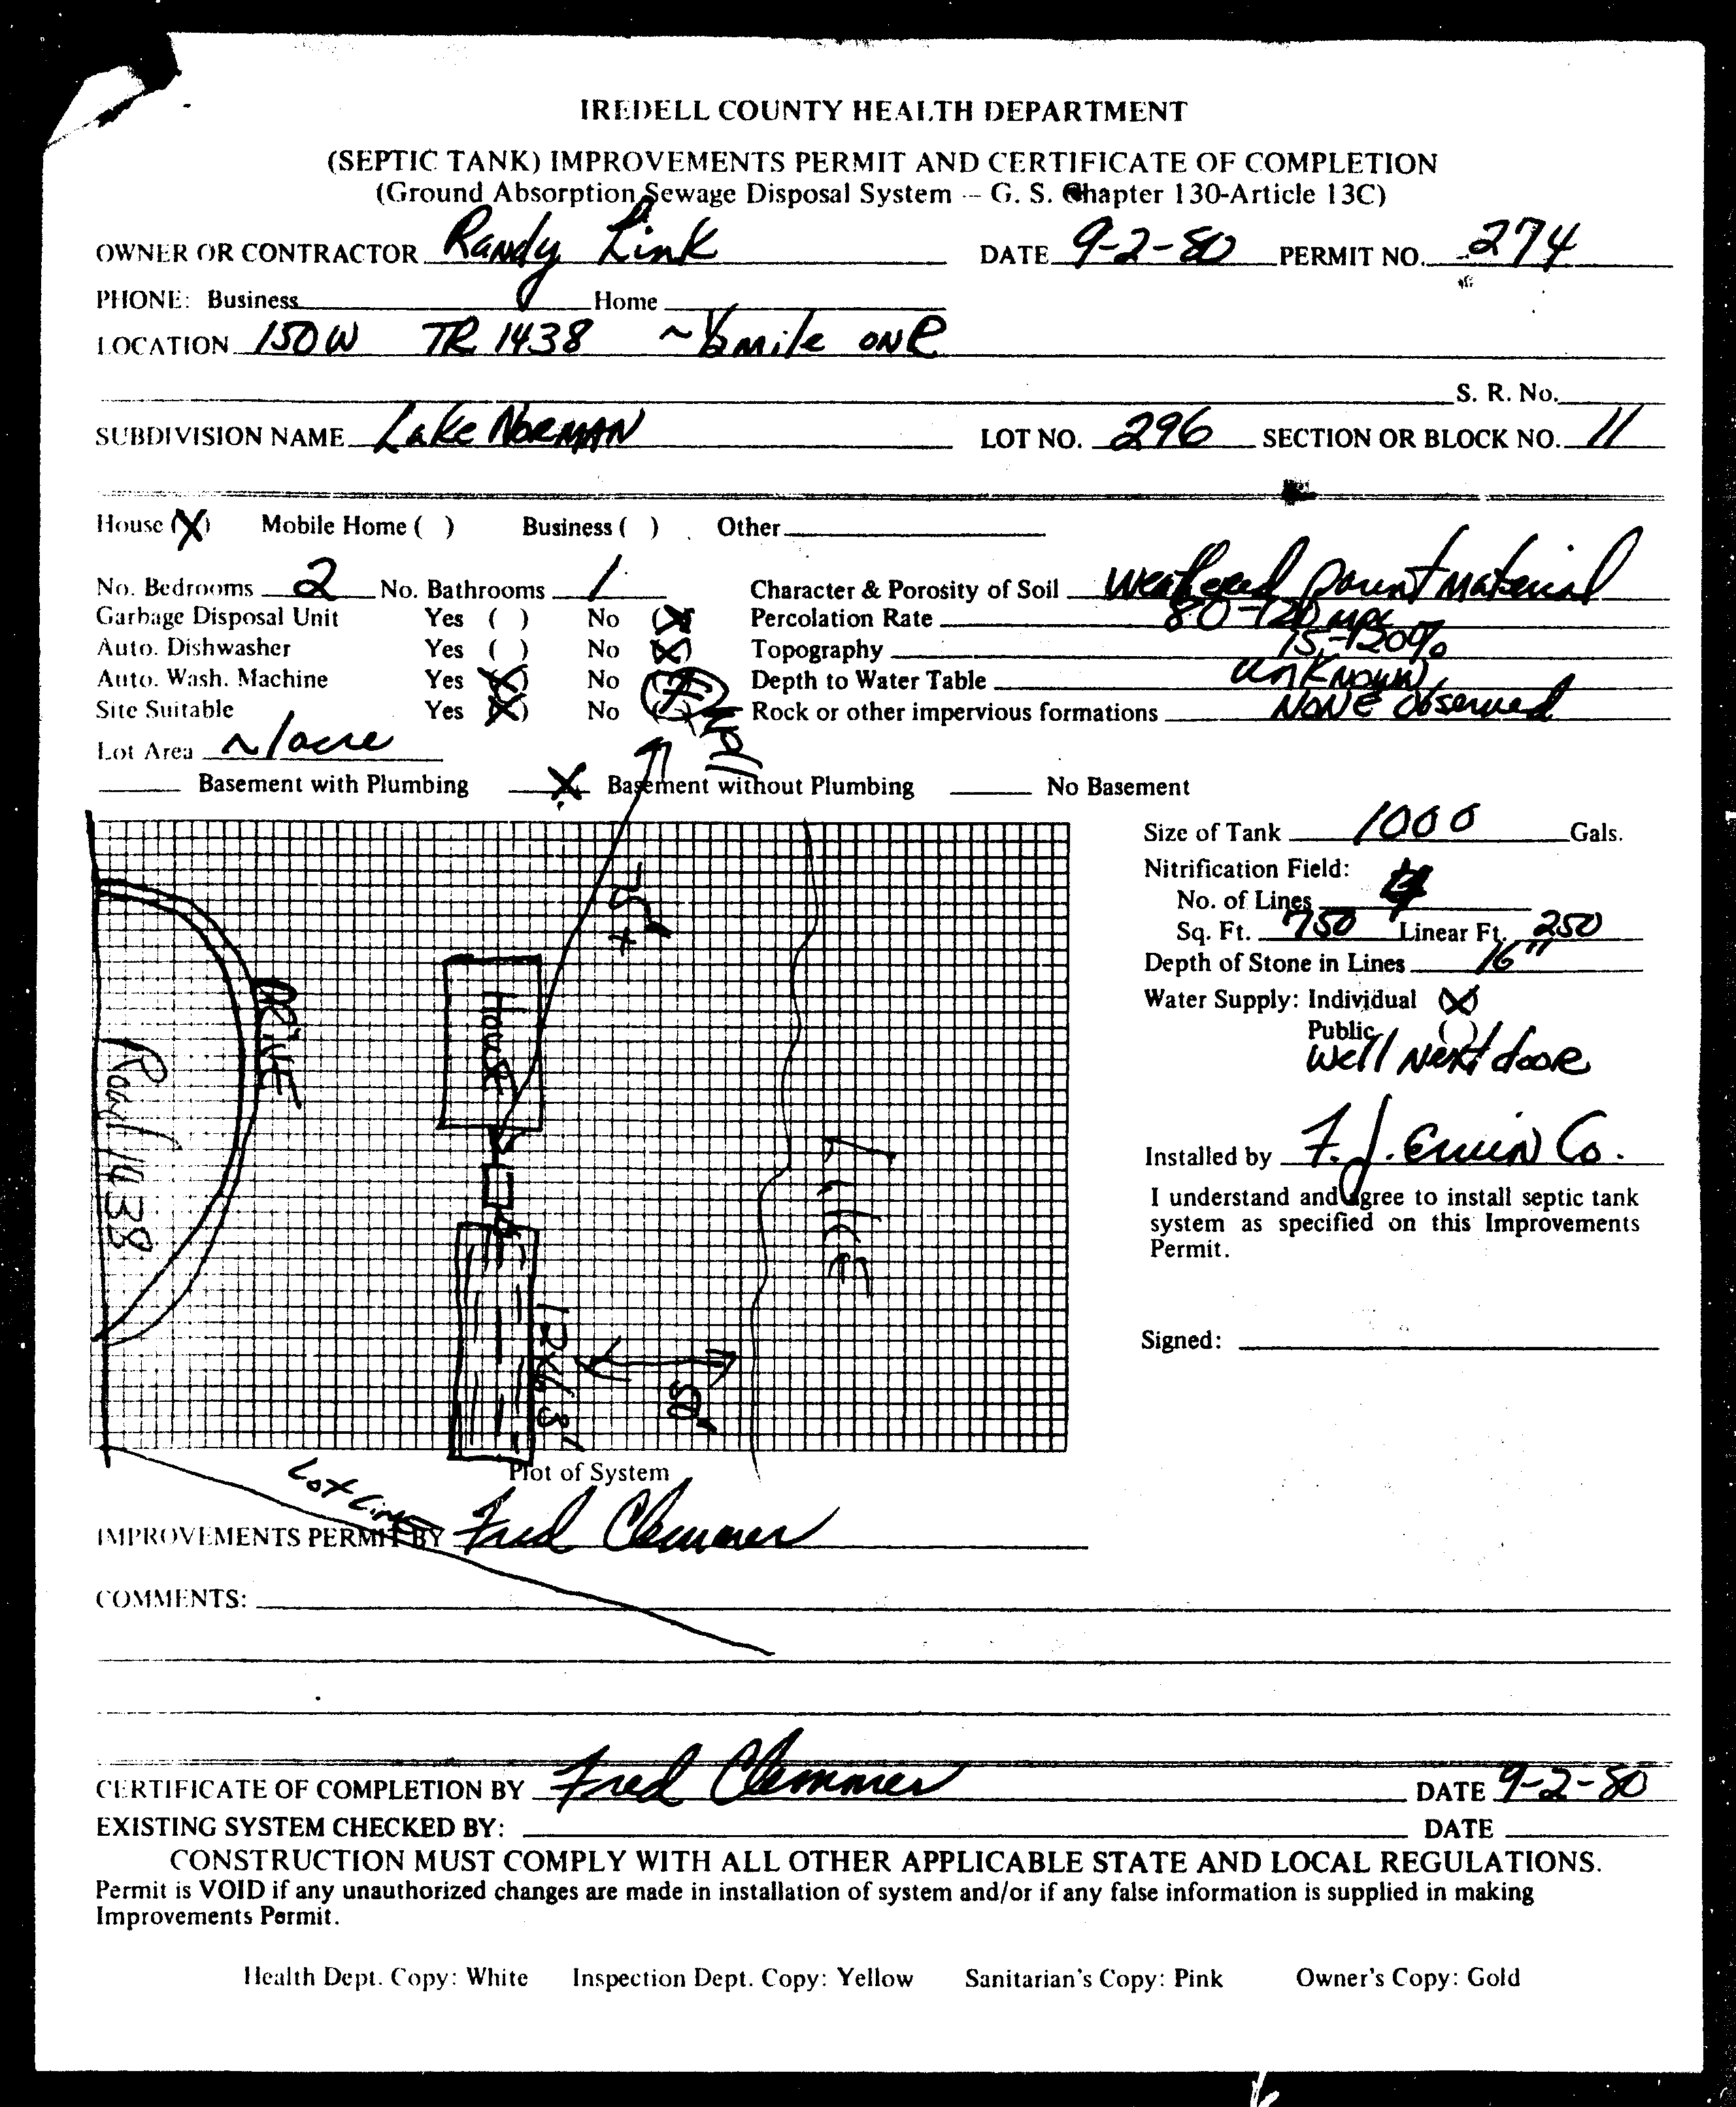 IREDELL COUNTY HEALTH DEPARTMENT
(SEPTIC TANK) IMPROVEMENTS PERMIT AND CERTIFICATE OF COMPLETION
(Ground Absorption Sewage Disposal System -- G. S. Chapter 130-Article 13C)
OWNER OR CONTRACTOR Randy Link DATE 9-2-80 PERMIT NO. 274
PHONE: Business Home
LOCATION 150W TR 1438 ~ ½ mile on R
S. R. No.
SUBDIVISION NAME Lake Norman LOT NO. 296 SECTION OR BLOCK NO. 11
House (X) Mobile Home ( ) Business ( ) Other
No. Bedrooms 2 No. Bathrooms 1 Character & Porosity of Soil Weathered parent Material
Garbage Disposal Unit Yes ( ) No (X) Percolation Rate 80-120 mpi
Auto. Dishwasher Yes ( ) No (X) Topography 15-20%
Auto. Wash. Machine Yes (X) No Depth to Water Table Unknown
Site Suitable Yes (X) No ( ) Rock or other impervious formations None observed
Lot Area ~1 acre
Basement with Plumbing X Basement without Plumbing No Basement
Size of Tank 1000 Gals.
Nitrification Field:
No. of Lines 4
Sq. Ft. 750 Linear Ft. 250
Depth of Stone in Lines 16"
Water Supply: Individual (X)
Public ( )
Well Next door
Installed by F. J. Erwin Co.
I understand and agree to install septic tank
system as specified on this Improvements
Permit.
Signed:
Road 1438
DRIVE
House
75'+
LAKE
12x63'
50'
Lot Line
Plot of System
IMPROVEMENTS PERMIT BY Fred Clemmer
COMMENTS:
CERTIFICATE OF COMPLETION BY Fred Clemmer DATE 9-2-80
EXISTING SYSTEM CHECKED BY: DATE
CONSTRUCTION MUST COMPLY WITH ALL OTHER APPLICABLE STATE AND LOCAL REGULATIONS.
Permit is VOID if any unauthorized changes are made in installation of system and/or if any false information is supplied in making
Improvements Permit.
Health Dept. Copy: White Inspection Dept. Copy: Yellow Sanitarian's Copy: Pink Owner's Copy: Gold